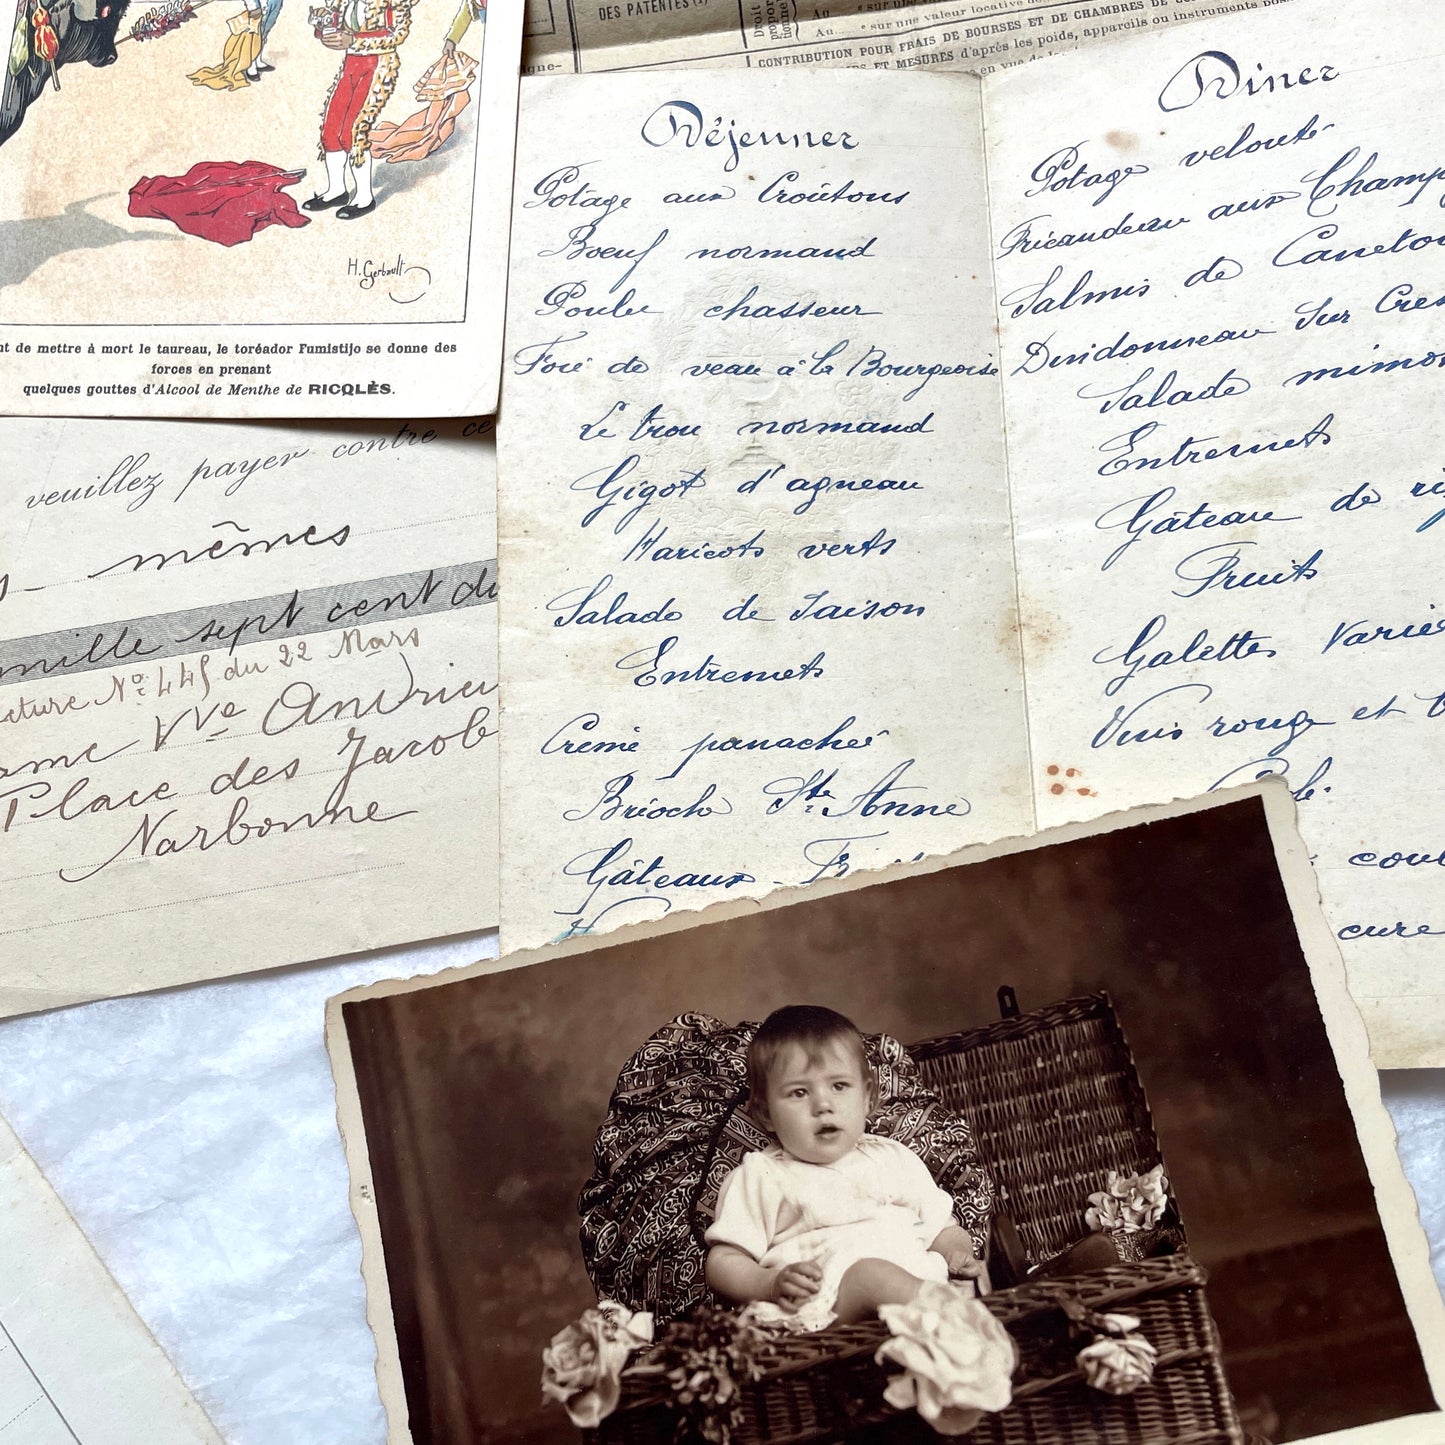 DES PATENTES (1)
Droit
propor-
tionnel
Au
Au
sur une valeur locative de
CONTRIBUTION POUR FRAIS DE BOURSES ET DE CHAMBRES DE
ET MESURES d'après les poids, appareils ou instruments
en vue de
H. Gerbault
nt de mettre à mort le taureau, le toréador Fumistijo se donne des
forces en prenant
quelques gouttes d'Alcool de Menthe de RICQLÈS.
veuillez payer contre ce
mêmes
mille sept cent du
cture No: 445 du 22 Mars
ame Vve Andrieu
Place des Jacob
Narbonne
Déjeuner
Potage aux Croûtons
Boeuf normand
Poule chasseur
Foie de veau à la Bourgeoise
Le trou normand
Gigot d'agneau
Haricots verts
Salade de Saison
Entremets
Crème panachée
Brioche Ste Anne
Gâteaux - Fr
Diner
Potage velouté
Fricandeau aux Champ
Salmis de Caneto
Dindonneau sur Cres
Salade mimo
Entremets
Gâteau de riz
Fruits
Galettes Variée
Vins rouge et b